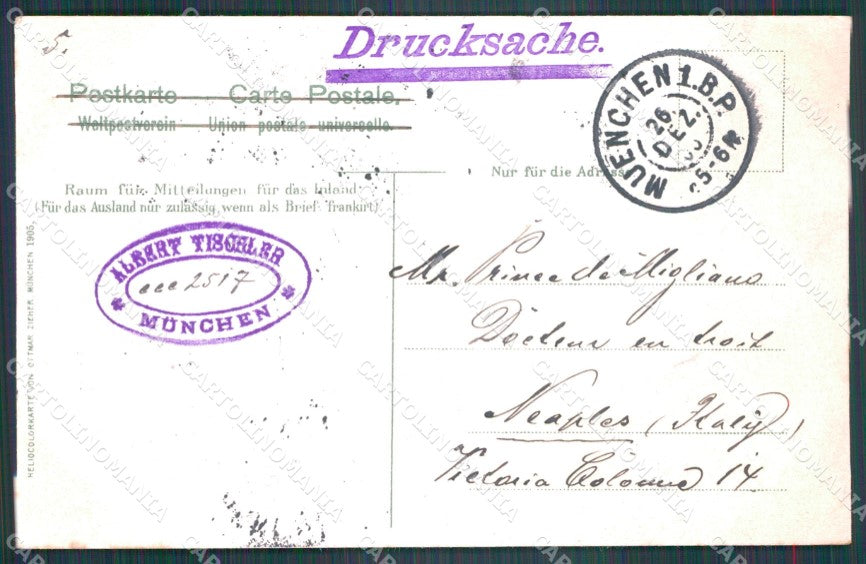 5.
Drucksache.
Postkarte Carte Postale.
Weltpostverein Union postale universelle.
MUENCHEN 1.B.P.
26
DEZ.
5-6N
Nur für die Adresse
Raum für Mitteilungen für das Inland
(Für das Ausland nur zulässig wenn als Brief frankirt)
ALBERT TISCHLER
ccc 2517
MÜNCHEN
HELIOCOLORKARTE VON OTTMAR ZIEHER MÜNCHEN 1905.
Mr. Prince de Migliano
Docteur en droit
Neaples (Italy)
Victoria Colonna 14
CARTOLINOMANIA